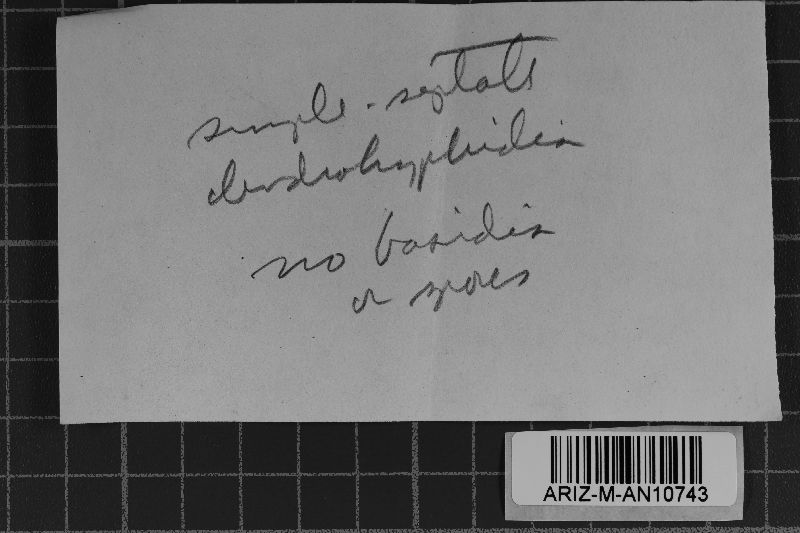 simple-septate
dendrohyphidia
no basidia
or spores
ARIZ-M-AN10743